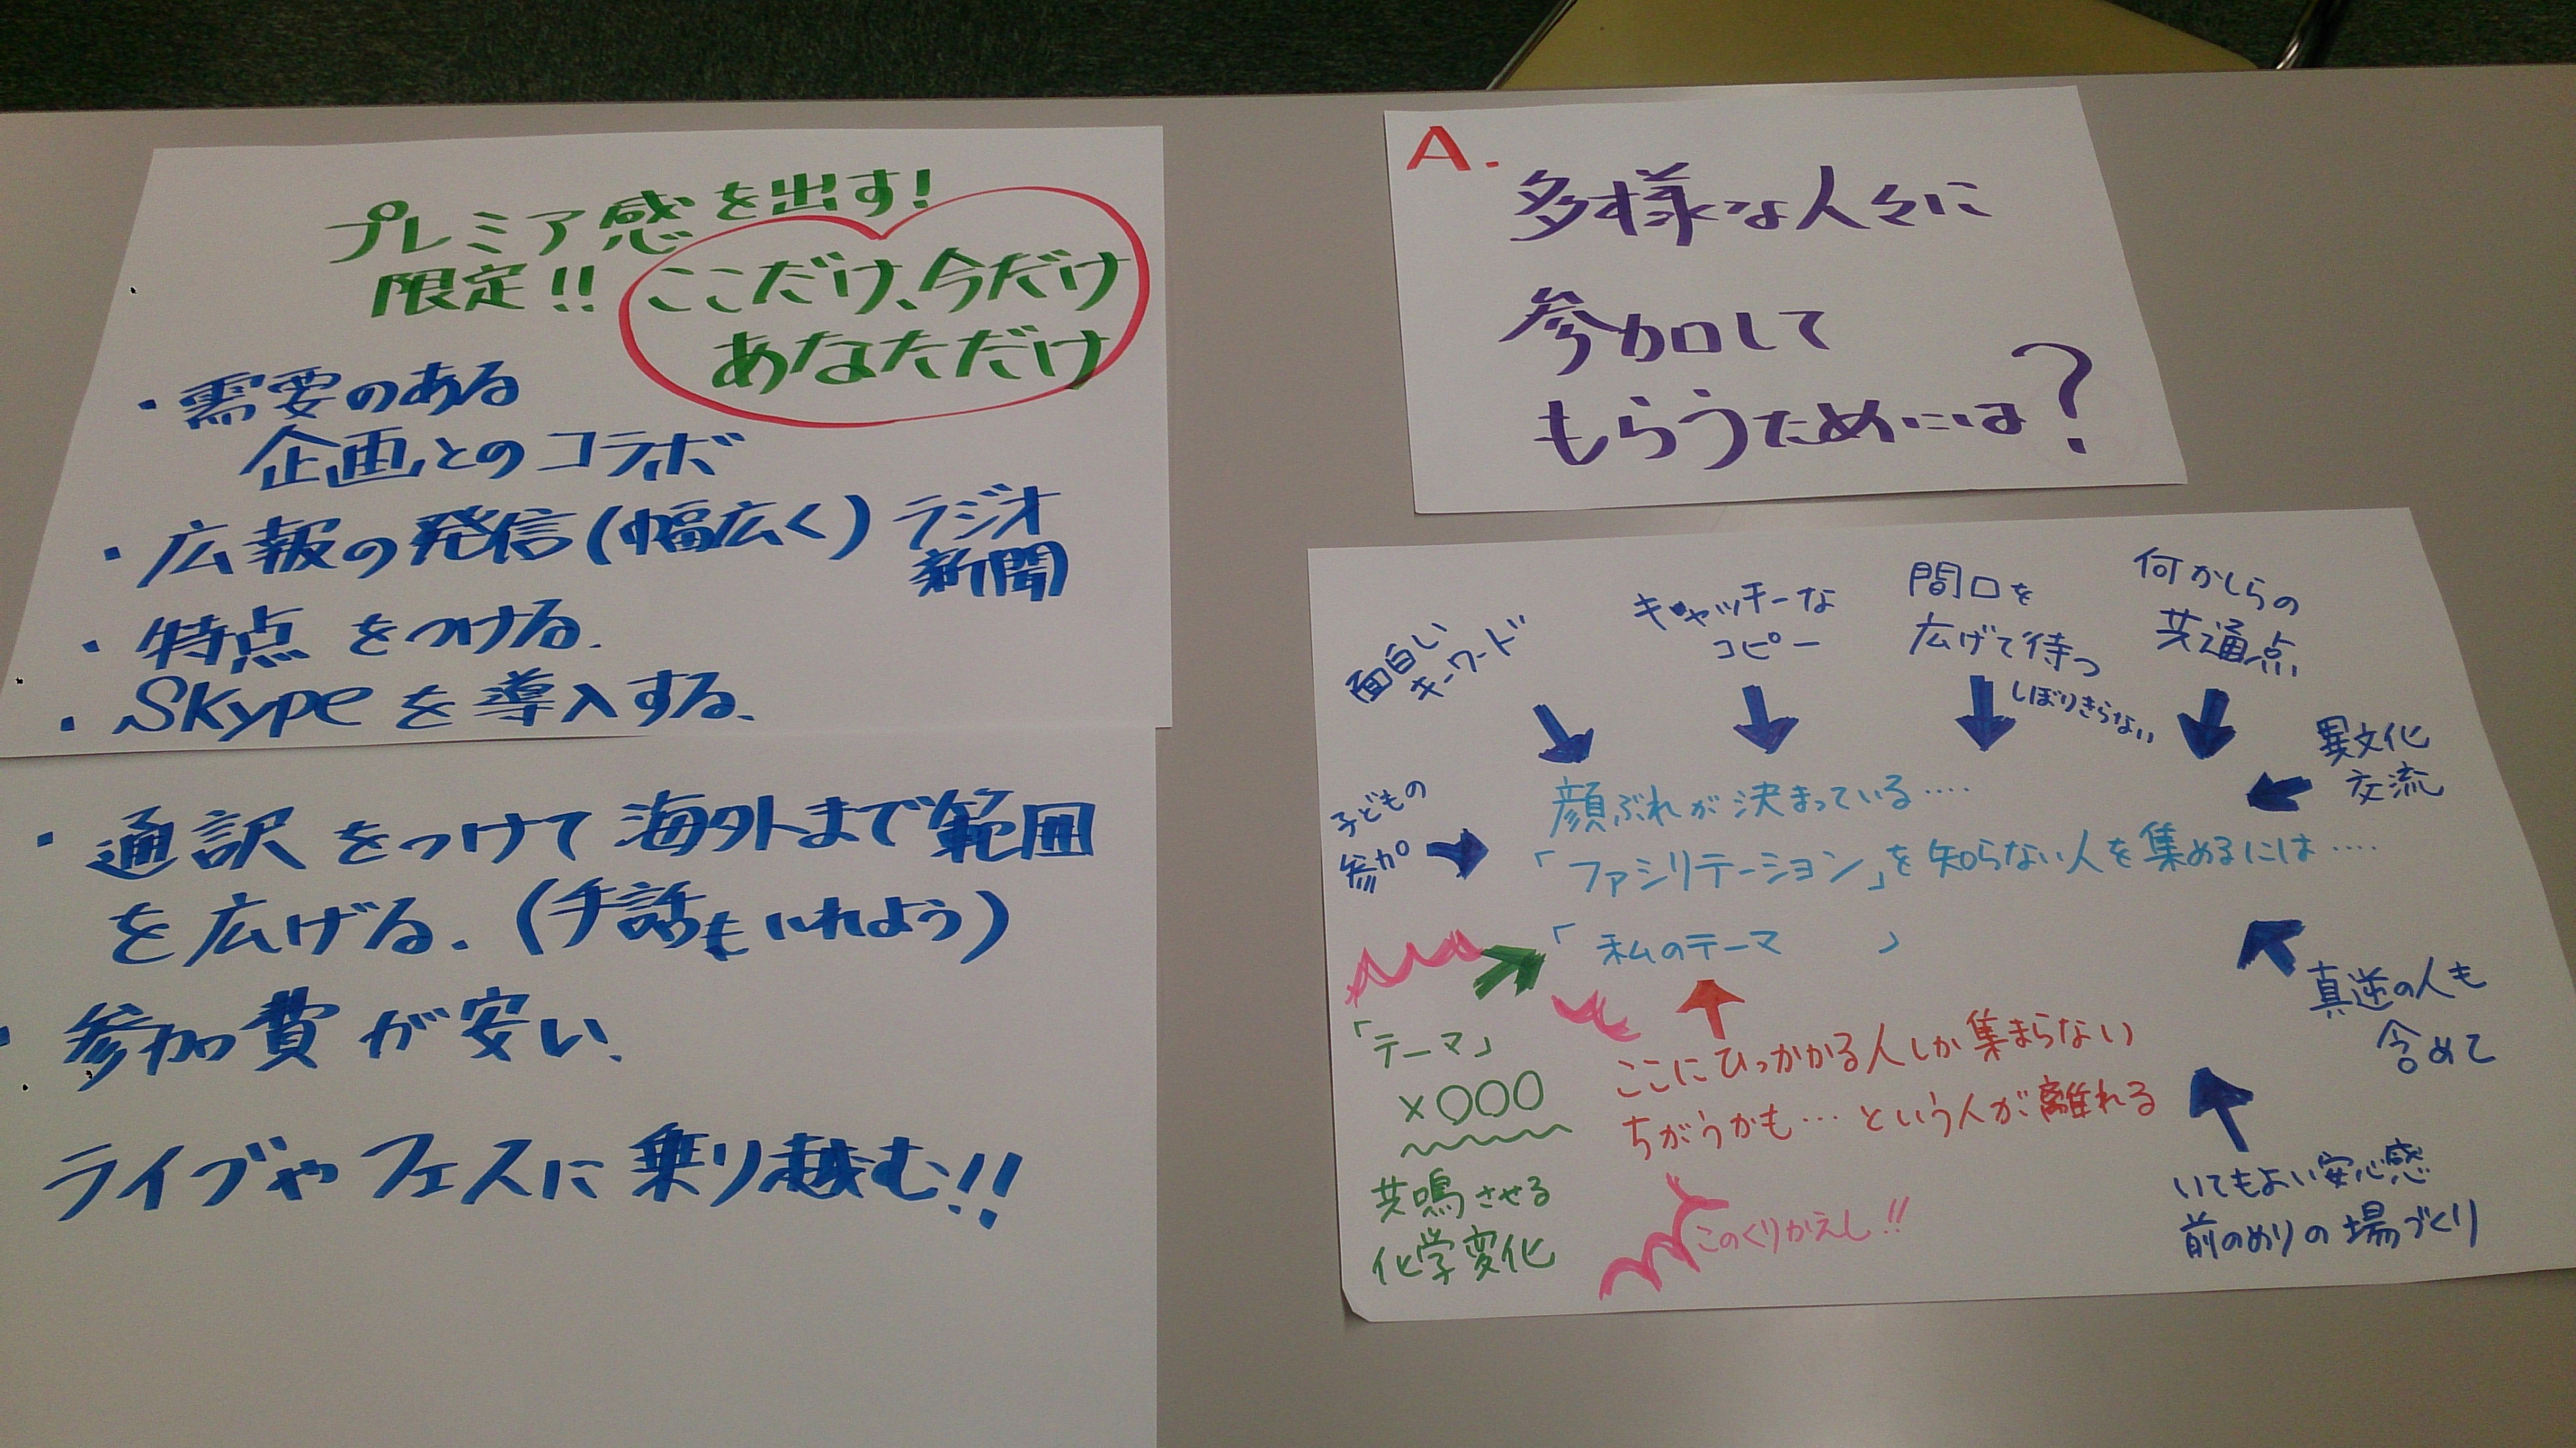 A.
多様な人々に
参加して
もらうためには?
プレミア感を出す!
限定!!
ここだけ、今だけ
あなただけ
・需要のある
企画とのコラボ
・広報の発信(幅広く)ラジオ
新聞
・特点をつける.
・Skypeを導入する.
・通訳をつけて海外まで範囲
を広げる.(手話もいれよう)
・参加費が安い.
ライブやフェスに乗り越む!!
面白い
キーワード
キャッチーな
コピー
間口を
広げて待つ
しぼりきらない
何かしらの
共通点
異文化
交流
子どもの
参加
顔ぶれが決まっている‥‥
「ファシリテーション」を知らない人を集めるには‥‥
「私のテーマ 」
真逆の人も
含めて
「テーマ」
×〇〇〇
共鳴させる
化学変化
ここにひっかかる人しか集まらない
ちがうかも…という人が離れる
このくりかえし!!
いてもよい安心感
前のめりの場づくり